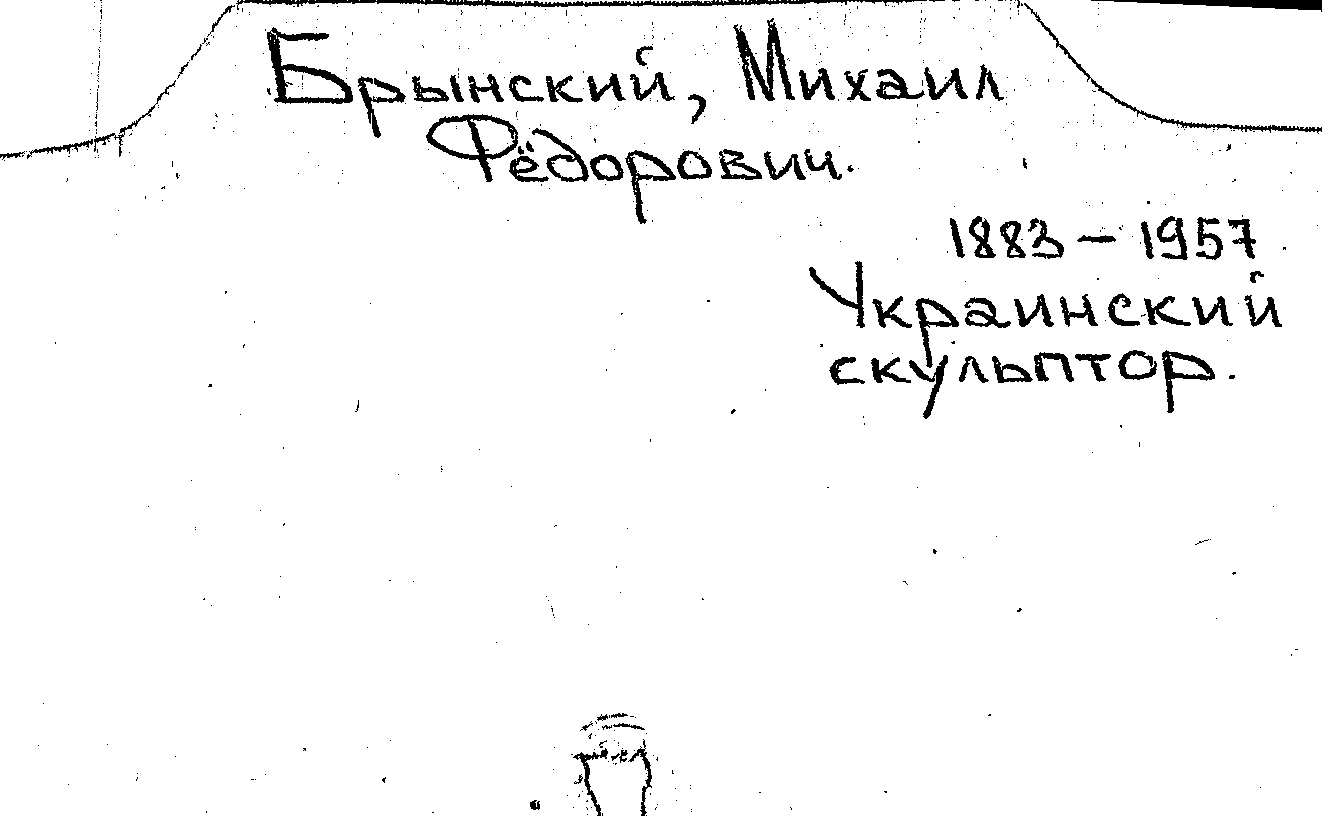 Брынский, Михаил
Фёдорович.
1883 – 1957
Украинский
скульптор.